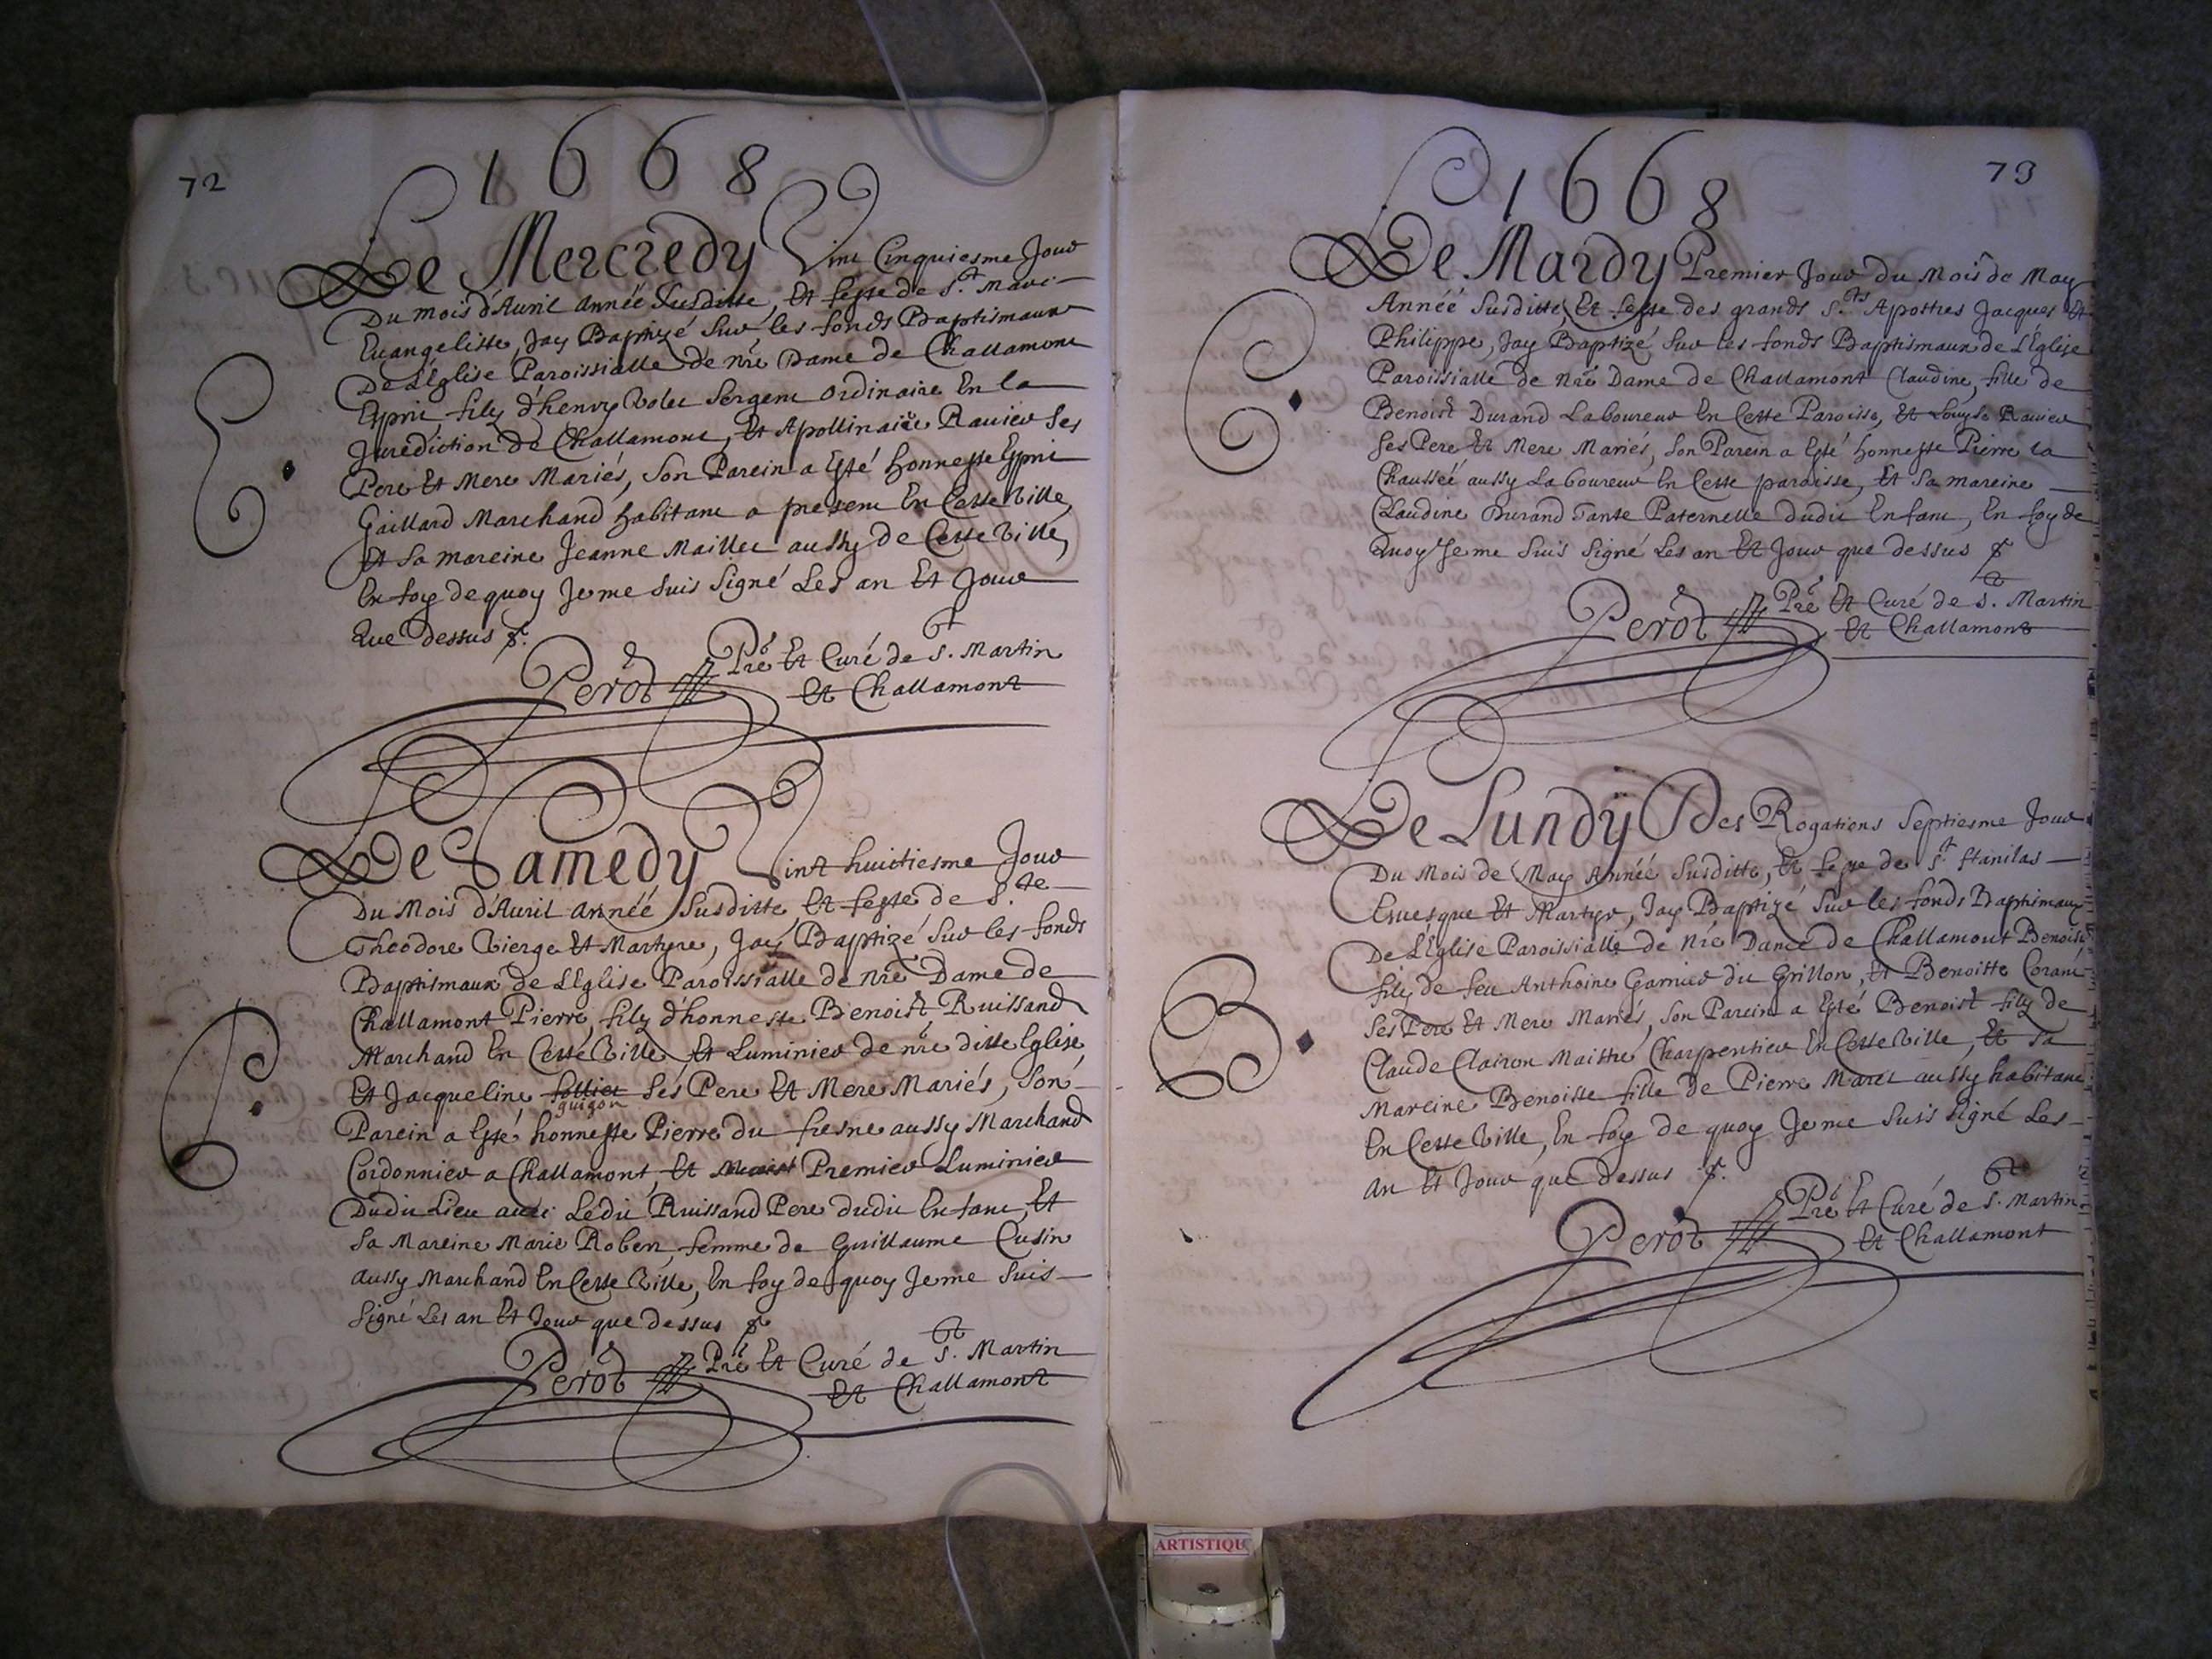 72
1668
Le Mercredy Vint Cinquiesme Jour
Du mois d'Auril Année Susditte, Et feste de S.t Marc
Euangeliste, Jay Baptizé Sur les fonds Baptismaux
De L'Eglise Paroissialle de nre Dame de Challamont
Espric, filz d'henry Bolet Sergent ordinaire En la
Jurediction de Challamont, Et Apollinaire Rauier Ses
Pere Et Mere Mariés, Son Parein a Esté honneste Espric
Gaillard Marchand habitant a present En Cette Ville,
Et Sa mareine Jeanne Maillet aussy de Cette Ville,
En foy de quoy Je me Suis Signé Les an Et Jour
Que dessus
E
Perot Pre Et Curé de S.t Martin
Et Challamont
Le Samedy Vint huictiesme Jour
Du Mois d'Auril Année Susditte, Et feste de S.te
Theodore Vierge Et Martyre, Jay Baptizé Sur les fonds
Baptismaux de L'Eglise Paroissialle de nre Dame de
Challamont Pierre, filz d'honneste Benoist Ruissand
Marchand En Cette Ville Et Luminier de nre ditte Eglise
Et Jacqueline follier Ses Pere Et Mere Mariés, Son
guigon
Parein a Esté honneste Pierre du fresne aussy Marchand
Cordonnier a Challamont, Et Premier Luminier
Dudit Lieu auec Ledit Ruissand Pere dudit Enfant, Et
Sa Mareine Marie Robert, femme de Guillaume Cusin
aussy Marchand En Cette Ville, En foy de quoy Je me Suis
Signé Les an Et Jour que dessus
P
Perot Pre Et Curé de S.t Martin
Et Challamont
73
1668
Le Mardy Premier Jour du Mois de May
Année Susditte, Et feste des grands S.ts Apostres Jacques Et
Philippe, Jay Baptizé Sur les fonds Baptismaux de L'Eglise
Paroissialle de nre Dame de Challamont Claudine, fille de
Benoist Durand Laboureur En Cette Paroisse, Et Louyse Rauier
Ses Pere Et Mere Mariés, Son Parein a Esté honneste Pierre la
Chaussée aussy Laboureur En Cette paroisse, Et Sa mareine
Claudine Durand Tante Paternelle dudit Enfant, En foy de
Quoy Je me Suis Signé Les an Et Jour que dessus
C
Perot Pre Et Curé de S.t Martin
Et Challamont
Le Lundy Des Rogations Septiesme Jour
Du Mois de May Année Susditte, Et feste de S.t Stanilas
Euesque Et Martyr, Jay Baptizé Sur les fonds Baptismaux
De L'Eglise Paroissialle de nre Dame de Challamont Benoist
filz de feu Anthoine Garnier du Grillon, Et Benoitte
Ses Pere Et Mere Mariés, Son Parein a Esté Benoist filz de
Claude Clairon Maistre Charpentier En Cette Ville, Et Sa
Mareine Benoiste fille de Pierre Morel aussy habitant
En Cette Ville, En foy de quoy Je me Suis Signé Les
an Et Jour que Dessus
B
Perot Pre Et Curé de S.t Martin
Et Challamont
ARTISTIQU